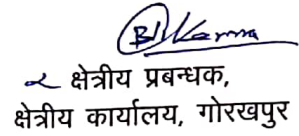 क्षेत्रीय प्रबन्धक,
क्षेत्रीय कार्यालय, गोरखपुर